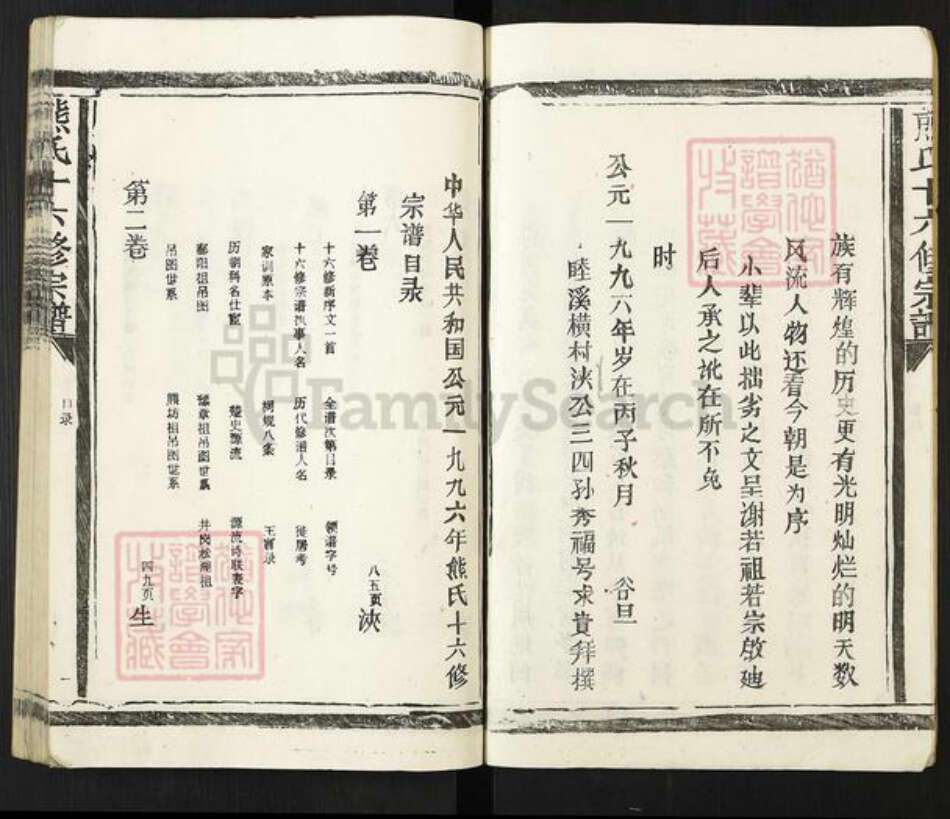 熊氏十六修宗譜
族有辉煌的历史更有光明灿烂的明天数
风流人物还看今朝是为序
小辈以此拙劣之文呈谢若祖若宗啟廸
后人承之讹在所不免
时
公元一九九六年岁在丙子秋月 谷旦
睦溪横村浃公三四孙秀福号求貴拜撰
中华人民共和国公元一九九六年熊氏十六修
宗谱目录
第一卷 八五页 浹
十六修新序文一首 全谱次第目录 领谱字号
十六修宗谱执事人名 历代修谱人名 徙居考
家训原本 祠规八条
历朝科名仕宦 楚史源流 源流诗联表字
鄱阳祖吊图 豫章祖吊图世系
吊图世系 熊坊祖吊图世系
第二卷 四九页 生
熊氏十六修宗譜
目录
一
FamilySearch